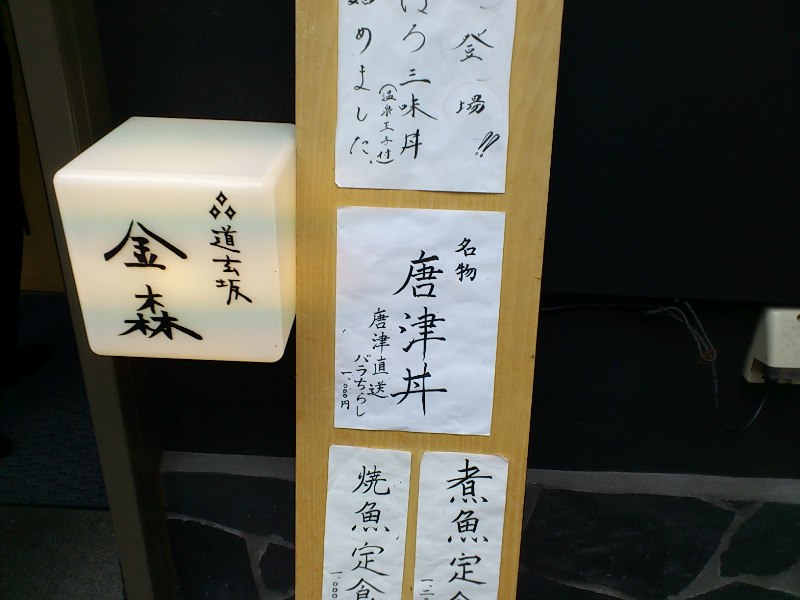 道玄坂
金森
登場!!
ほろ三味丼
(温泉玉子付)
始めました。
名物
唐津丼
唐津直送
バラちらし
一、〇〇〇円
煮魚定食
焼魚定食
一、〇〇〇